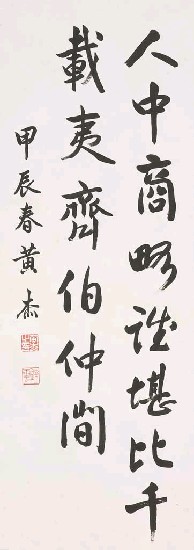 人中商略誰堪比千
載夷齊伯仲間
甲辰春黄杰